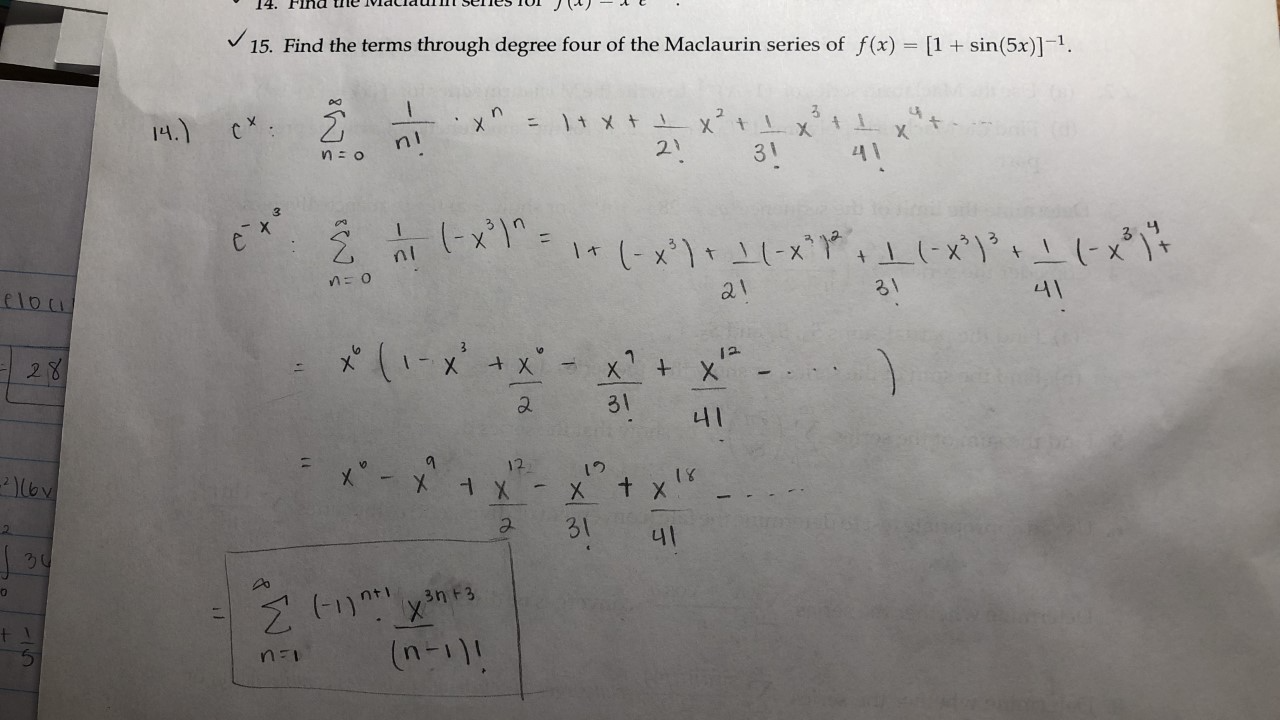 14. Find the Maclaurin series for f(x) =
✓ 15. Find the terms through degree four of the Maclaurin series of f(x) = [1 + sin(5x)]⁻¹.
14.) eˣ : ∞ Σ n=0 1/n! · xⁿ = 1 + x + 1/2! x² + 1/3! x³ + 1/4! x⁴ + - ...
e^-x³ : ∞ Σ n=0 1/n! (-x³)ⁿ = 1 + (-x³) + 1/2! (-x³)² + 1/3! (-x³)³ + 1/4! (-x³)⁴ +
= x⁶ ( 1 - x³ + x⁶/2 - x⁹/3! + x¹²/4! - .... )
= x⁶ - x⁹ + x¹²/2 - x¹⁵/3! + x¹⁸/4! - ....
= ∞ Σ n=1 (-1)ⁿ⁺¹ · x³ⁿ⁺³/(n-1)!
28
∫ 3
+ 1/5